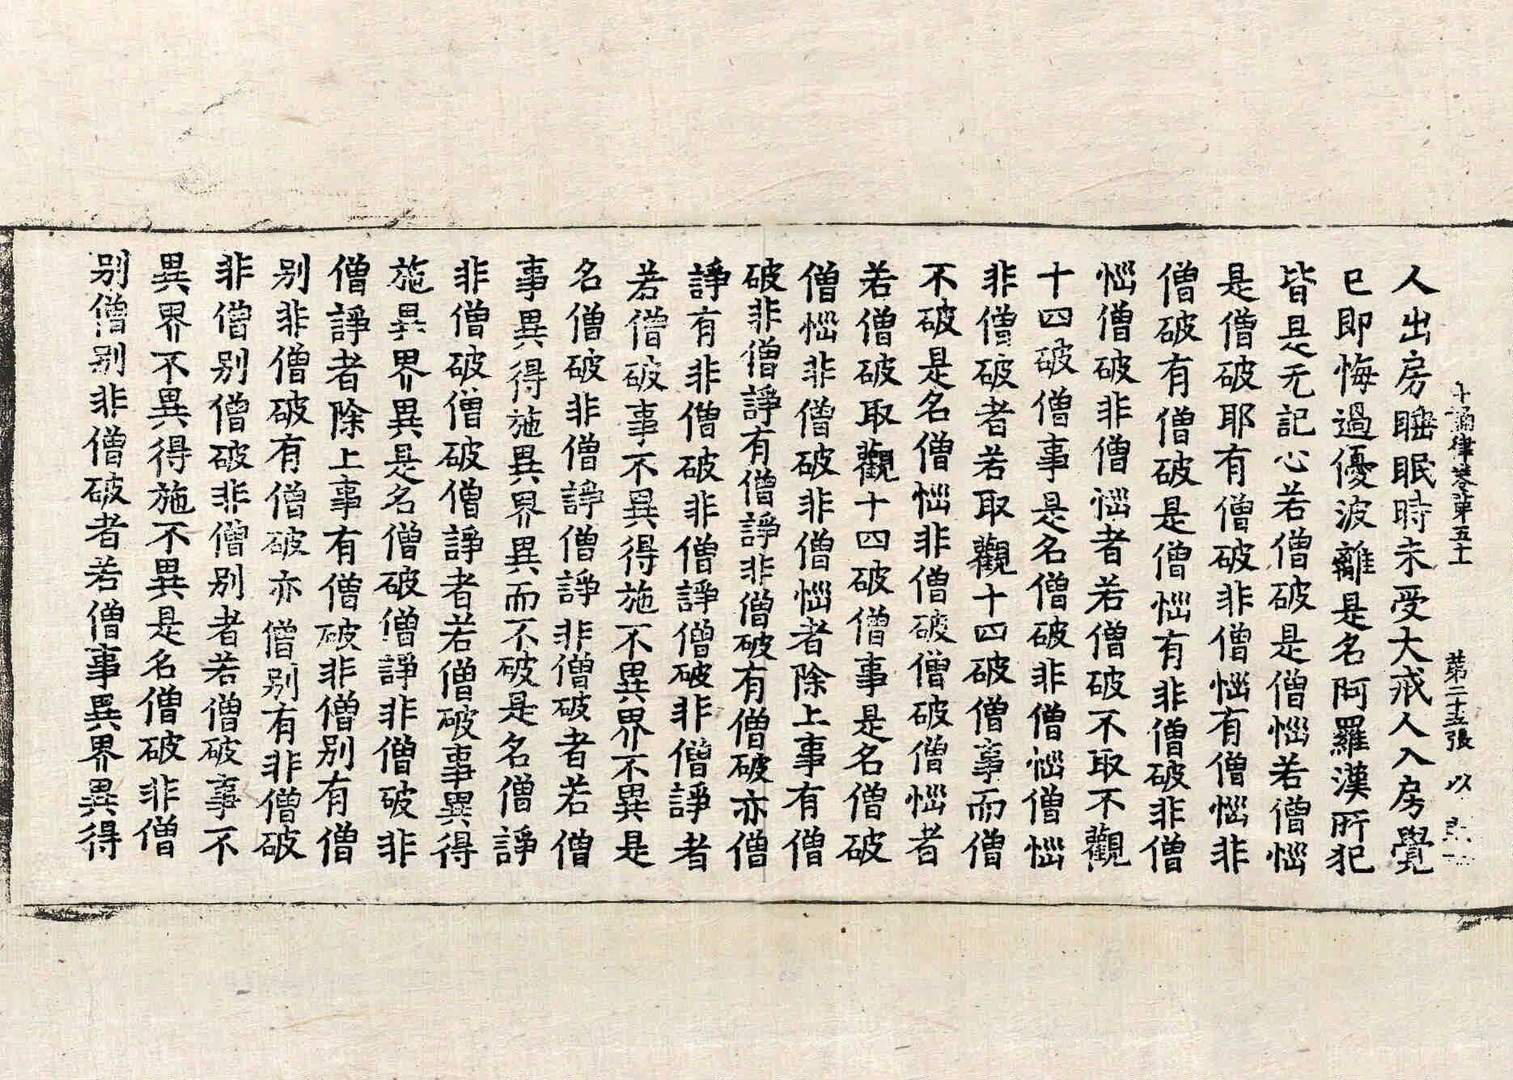 十誦律卷第五十　第二十五張　以
人出房睡眠時未受大戒人入房覺
已即悔過優波離是名阿羅漢所犯
皆是无記心若僧破是僧惱若僧惱
是僧破耶有僧破非僧惱有僧惱非
僧破有僧破是僧惱有非僧破非僧
惱僧破非僧惱者若僧破不取不觀
十四破僧事是名僧破非僧惱僧惱
非僧破者若取觀十四破僧事而僧
不破是名僧惱非僧破僧破僧惱者
若僧破取觀十四破僧事是名僧破
僧惱非僧破非僧惱者除上事有僧
破非僧諍有僧諍非僧破有僧破亦僧
諍有非僧破非僧諍僧破非僧諍者
若僧破事不異得施不異界不異是
名僧破非僧諍僧諍非僧破者若僧
事異得施異界異而不破是名僧諍
非僧破僧破僧諍者若僧破事異得
施異界異是名僧破僧諍非僧破非
僧諍者除上事有僧破非僧別有僧
別非僧破有僧破亦僧別有非僧破
非僧別僧破非僧別者若僧破事不
異界不異得施不異是名僧破非僧
別僧別非僧破者若僧事異界異得